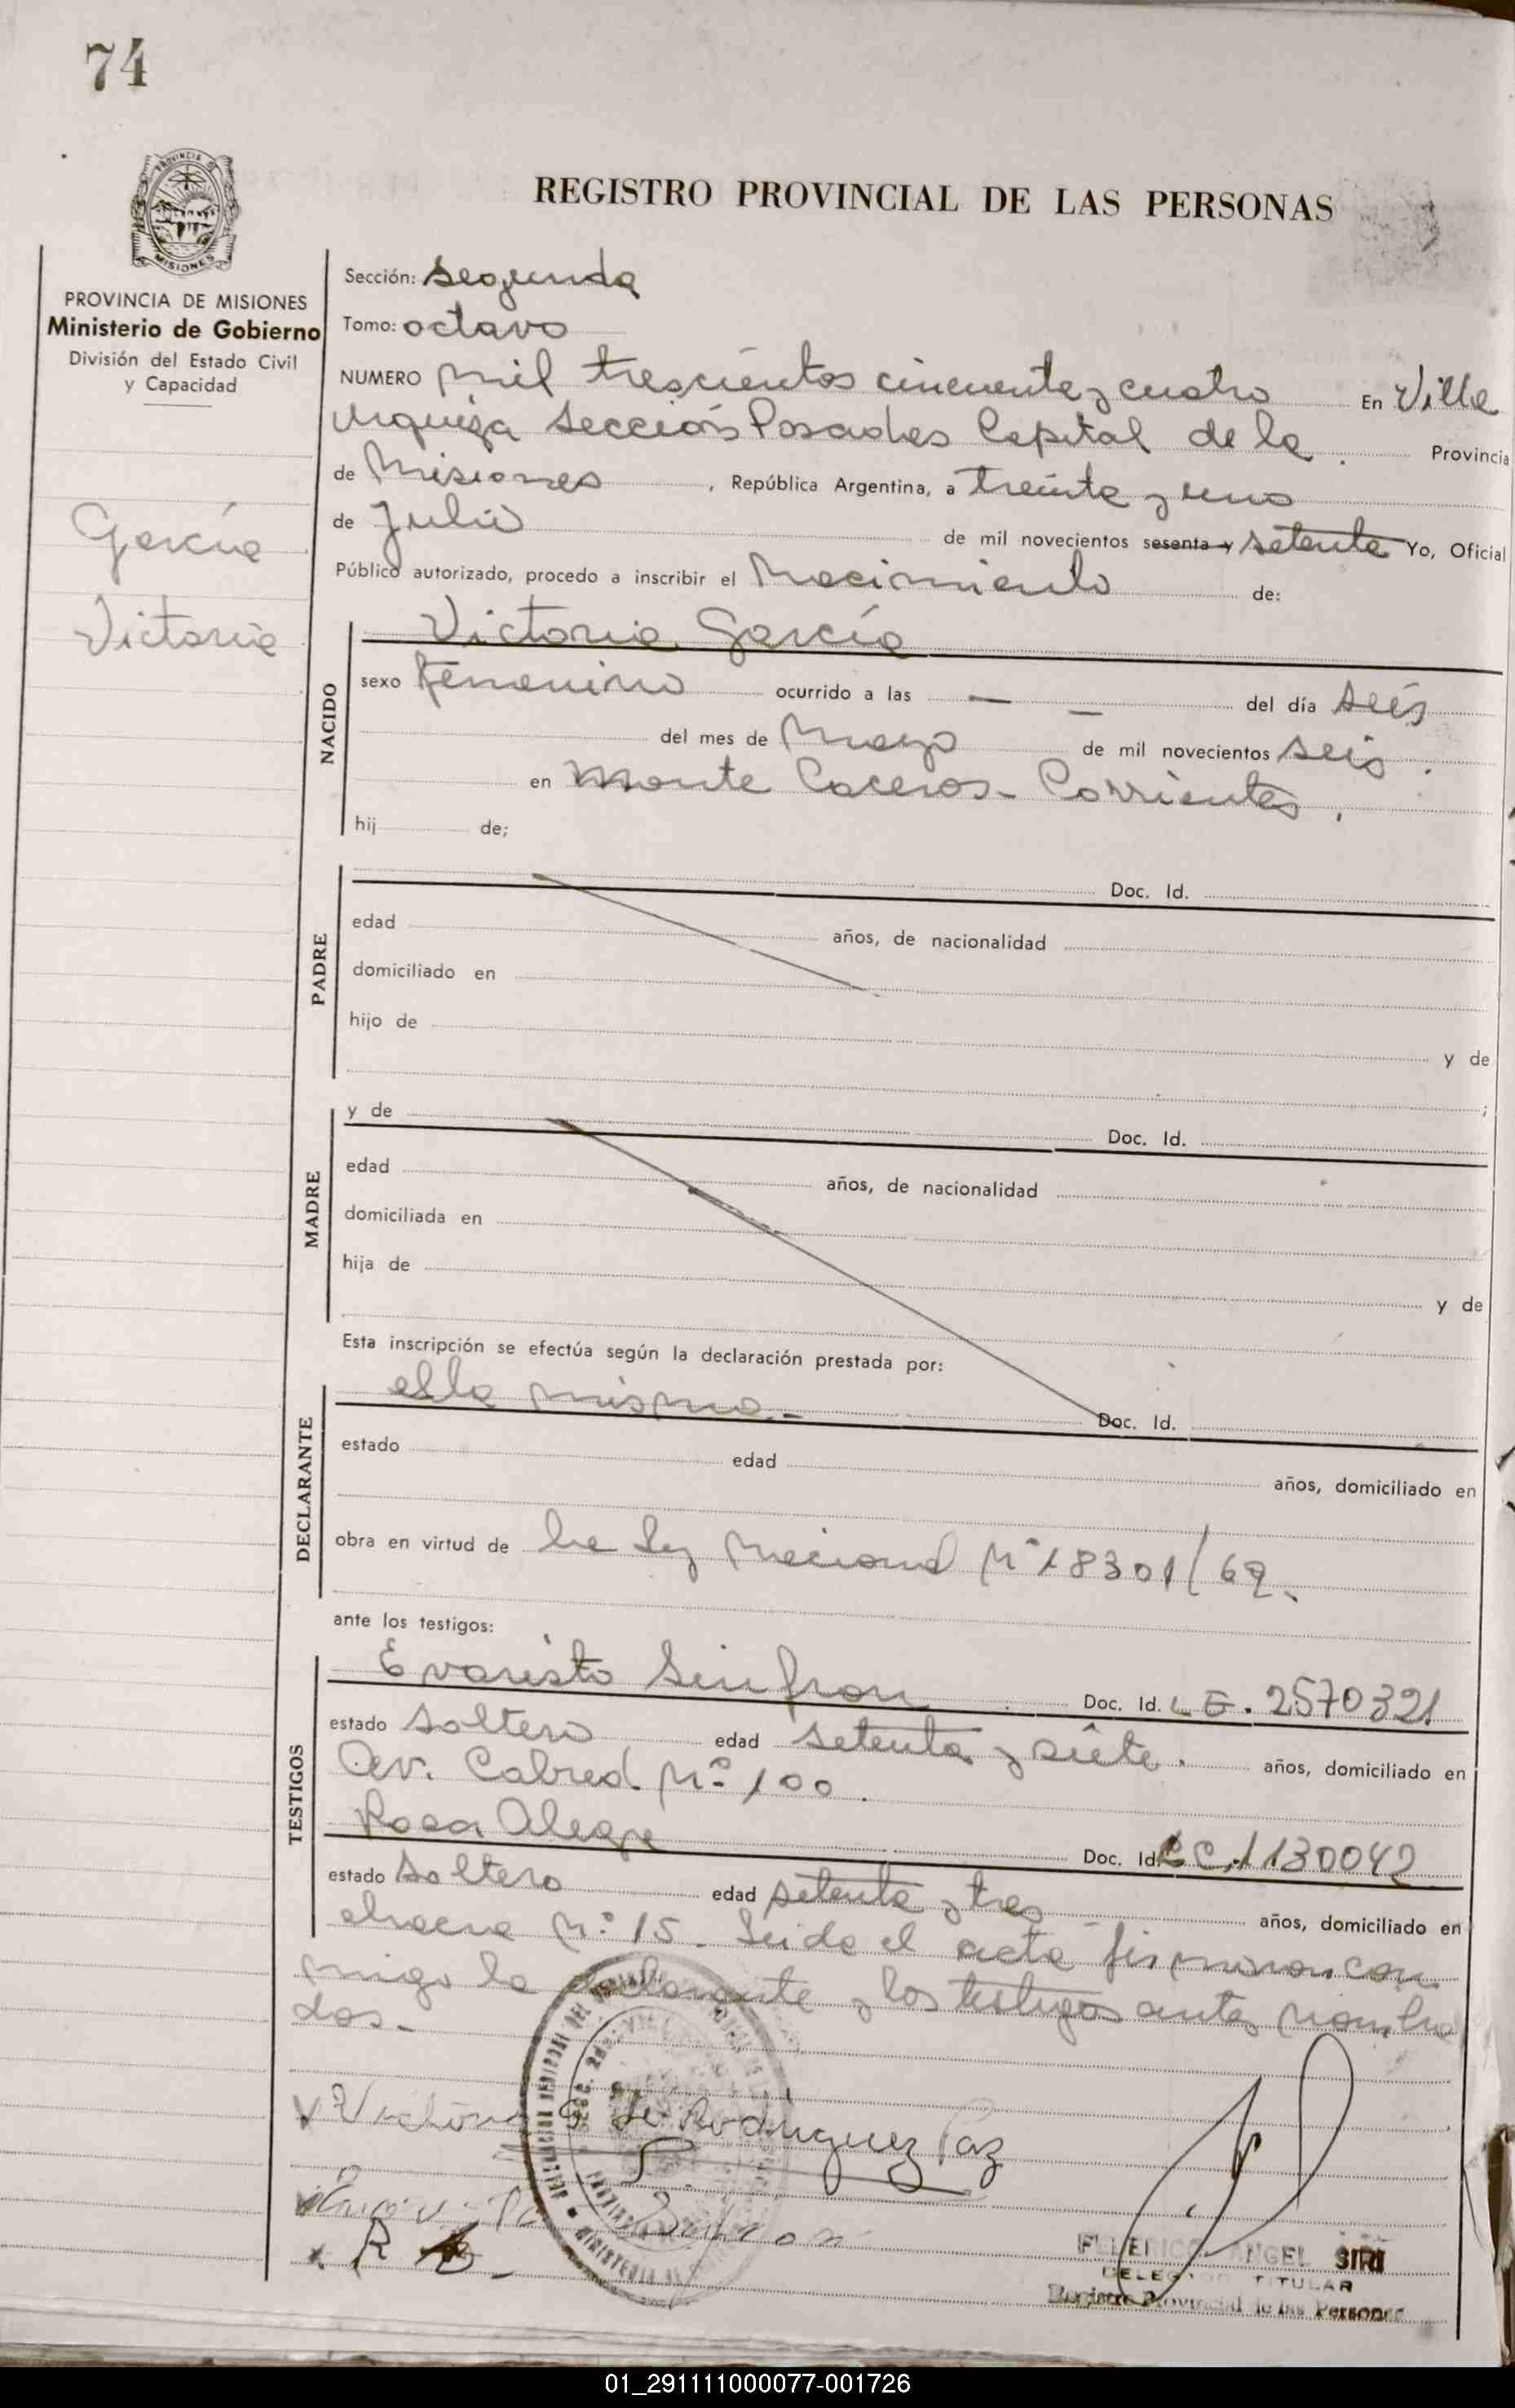 74
REGISTRO PROVINCIAL DE LAS PERSONAS
PROVINCIA DE MISIONES
Ministerio de Gobierno
División del Estado Civil
y Capacidad
García
Victoria
Sección: segunda
Tomo: octavo
NUMERO mil trescientos cincuenta y cuatro En Villa
Urquiza Sección Posadas Capital de la Provincia
de Misiones, República Argentina, a treinta y uno
de Julio de mil novecientos sesenta y setenta Yo, Oficial
Público autorizado, procedo a inscribir el Nacimiento de:
NACIDO
Victoria García
sexo femenino ocurrido a las — — del día seis
del mes de Mayo de mil novecientos seis.
en Monte Caceros - Corrientes.
hij de;
PADRE
Doc. Id.
edad años, de nacionalidad
domiciliado en
hijo de
y de
;
MADRE
y de Doc. Id.
edad años, de nacionalidad
domiciliada en
hija de
y de
Esta inscripción se efectúa según la declaración prestada por:
DECLARANTE
ella misma.- Doc. Id.
estado edad años, domiciliado en
obra en virtud de la Ley Nacional Nº 18301/69.
ante los testigos:
TESTIGOS
Evaristo Sinfron Doc. Id. L E. 2570321
estado soltero edad setenta y siete. años, domiciliado en
Av. Cabred Nº 100.
Rosa Alegre Doc. Id. LC. 1130042
estado soltero edad setenta y tres años, domiciliado en
chacra Nº 15. Leida el acta firmaron con
migo la declarante y los testigos antes nombra
dos.-
Victoria G de Rodriguez Paz
R A
FEDERICO ANGEL SIRI
DELEGADO TITULAR
Registro Provincial de las Personas
01_291111000077-001726